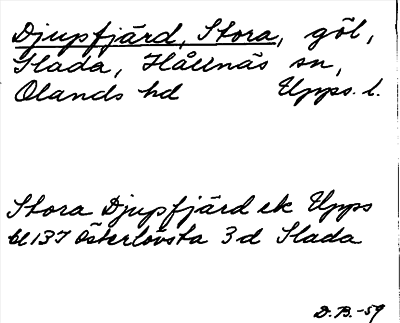 Djupfjärd, Stora, göl,
Slada, Hållnäs sn,
Olands hd Upps. l.
Stora Djupfjärd ek Upps
bl 137 Österlövsta 3d Slada
D.B.-59